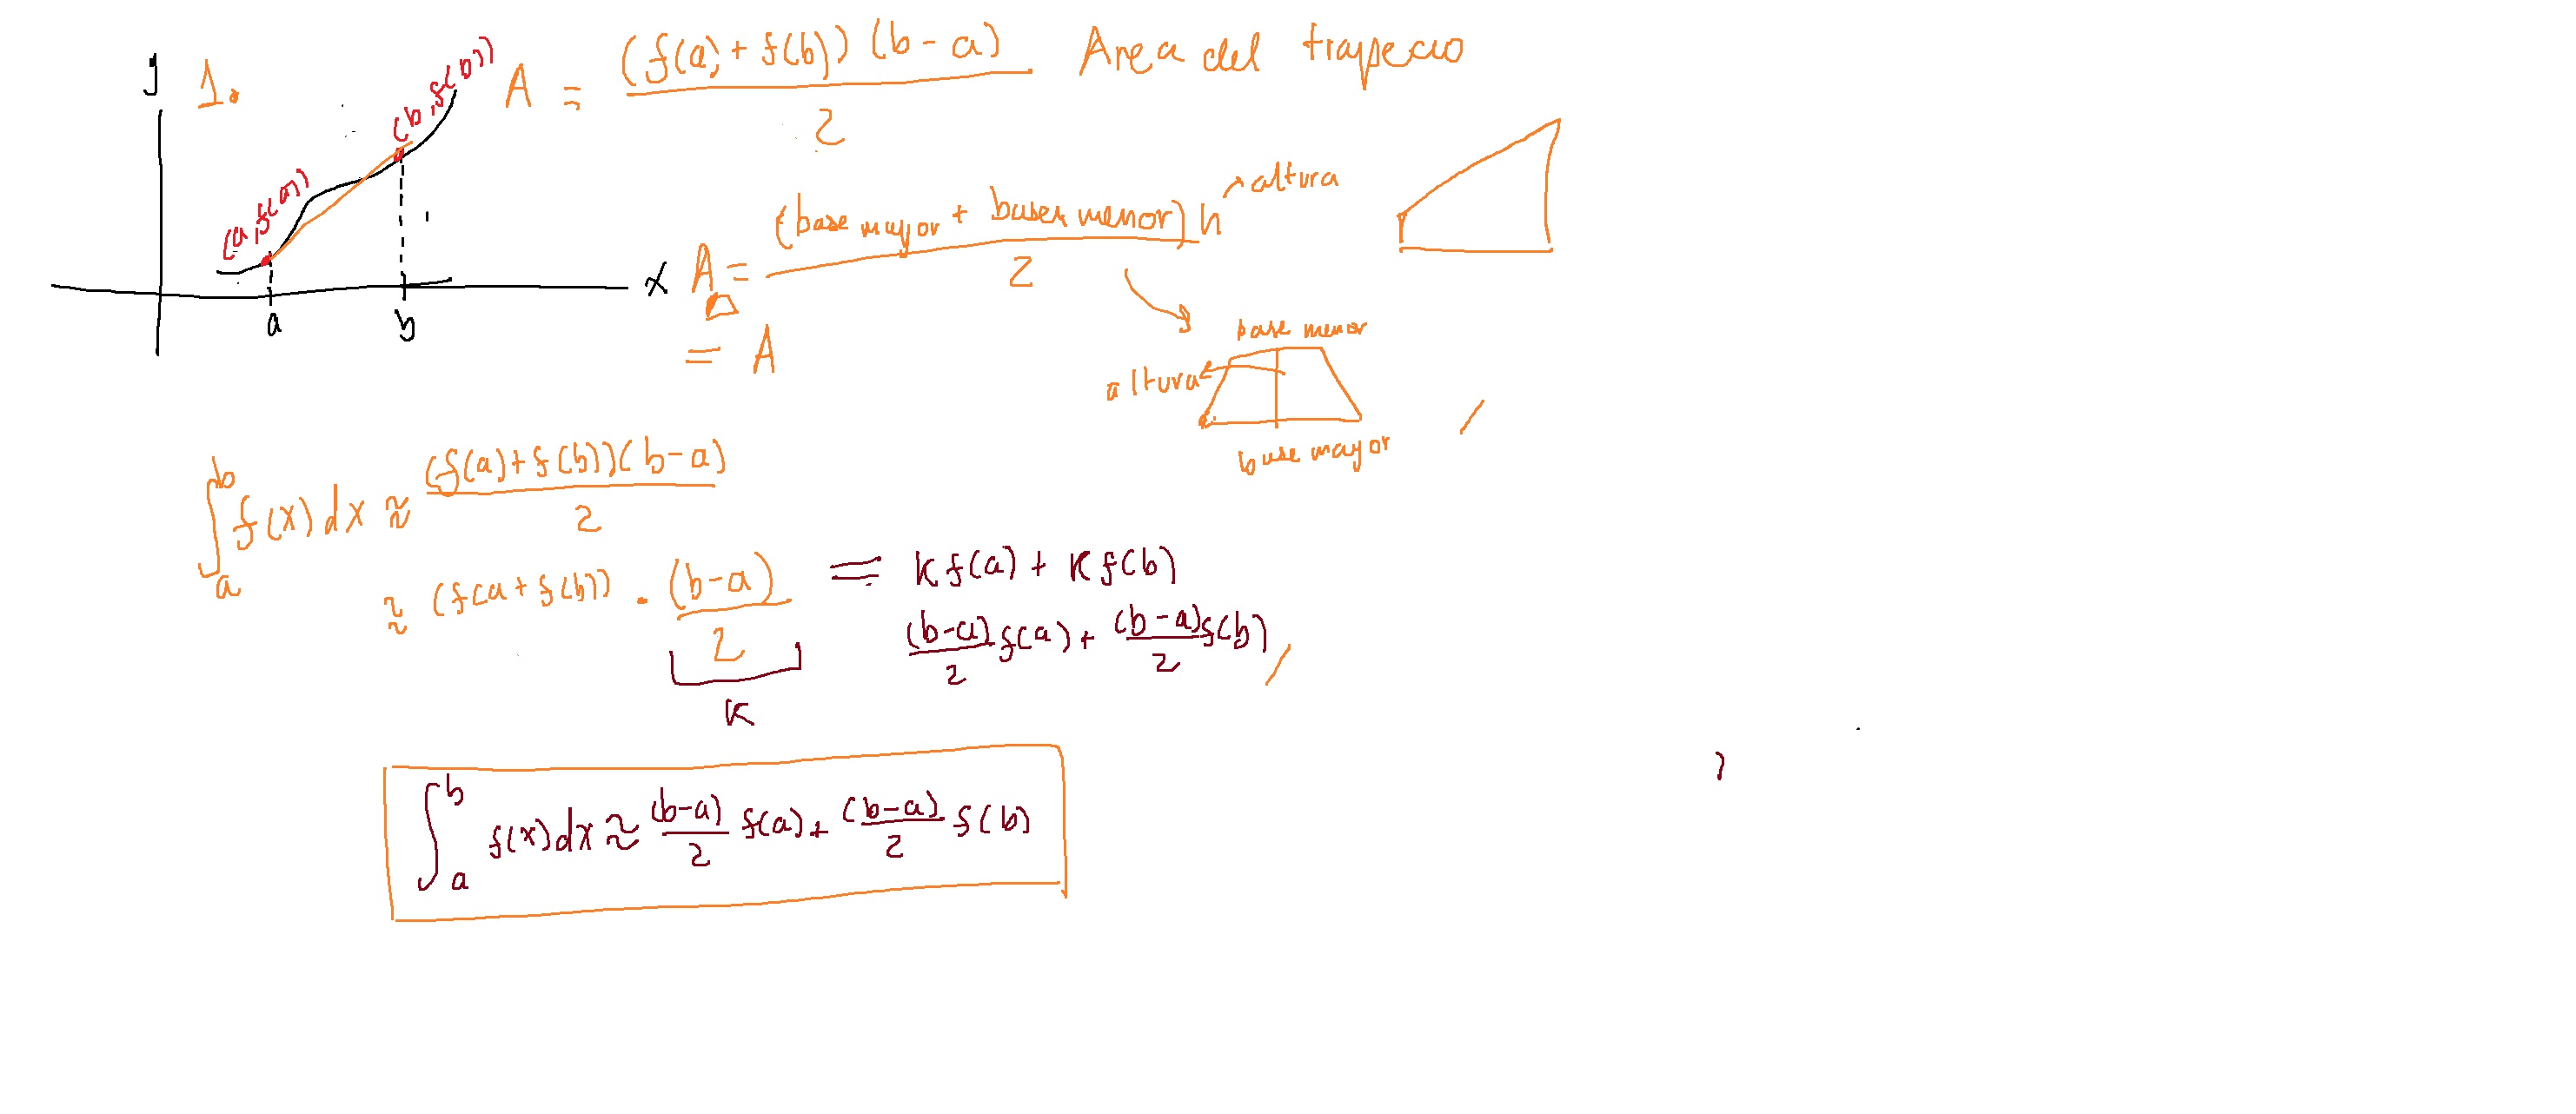 y 1. (b, f(b)) A = (f(a) + f(b)) (b - a) / 2 Area del trapecio
(a, f(a))
x
a b
A = (base mayor + base menor) h / 2 altura
= A
base menor
altura
base mayor
∫_a^b f(x) dx ≈ (f(a) + f(b))(b - a) / 2
≈ (f(a + f(b)) · (b - a) / 2 = K f(a) + K f(b)
K
(b-a)/2 f(a) + (b-a)/2 f(b)
∫_a^b f(x) dx ≈ (b-a)/2 f(a) + (b-a)/2 f(b)